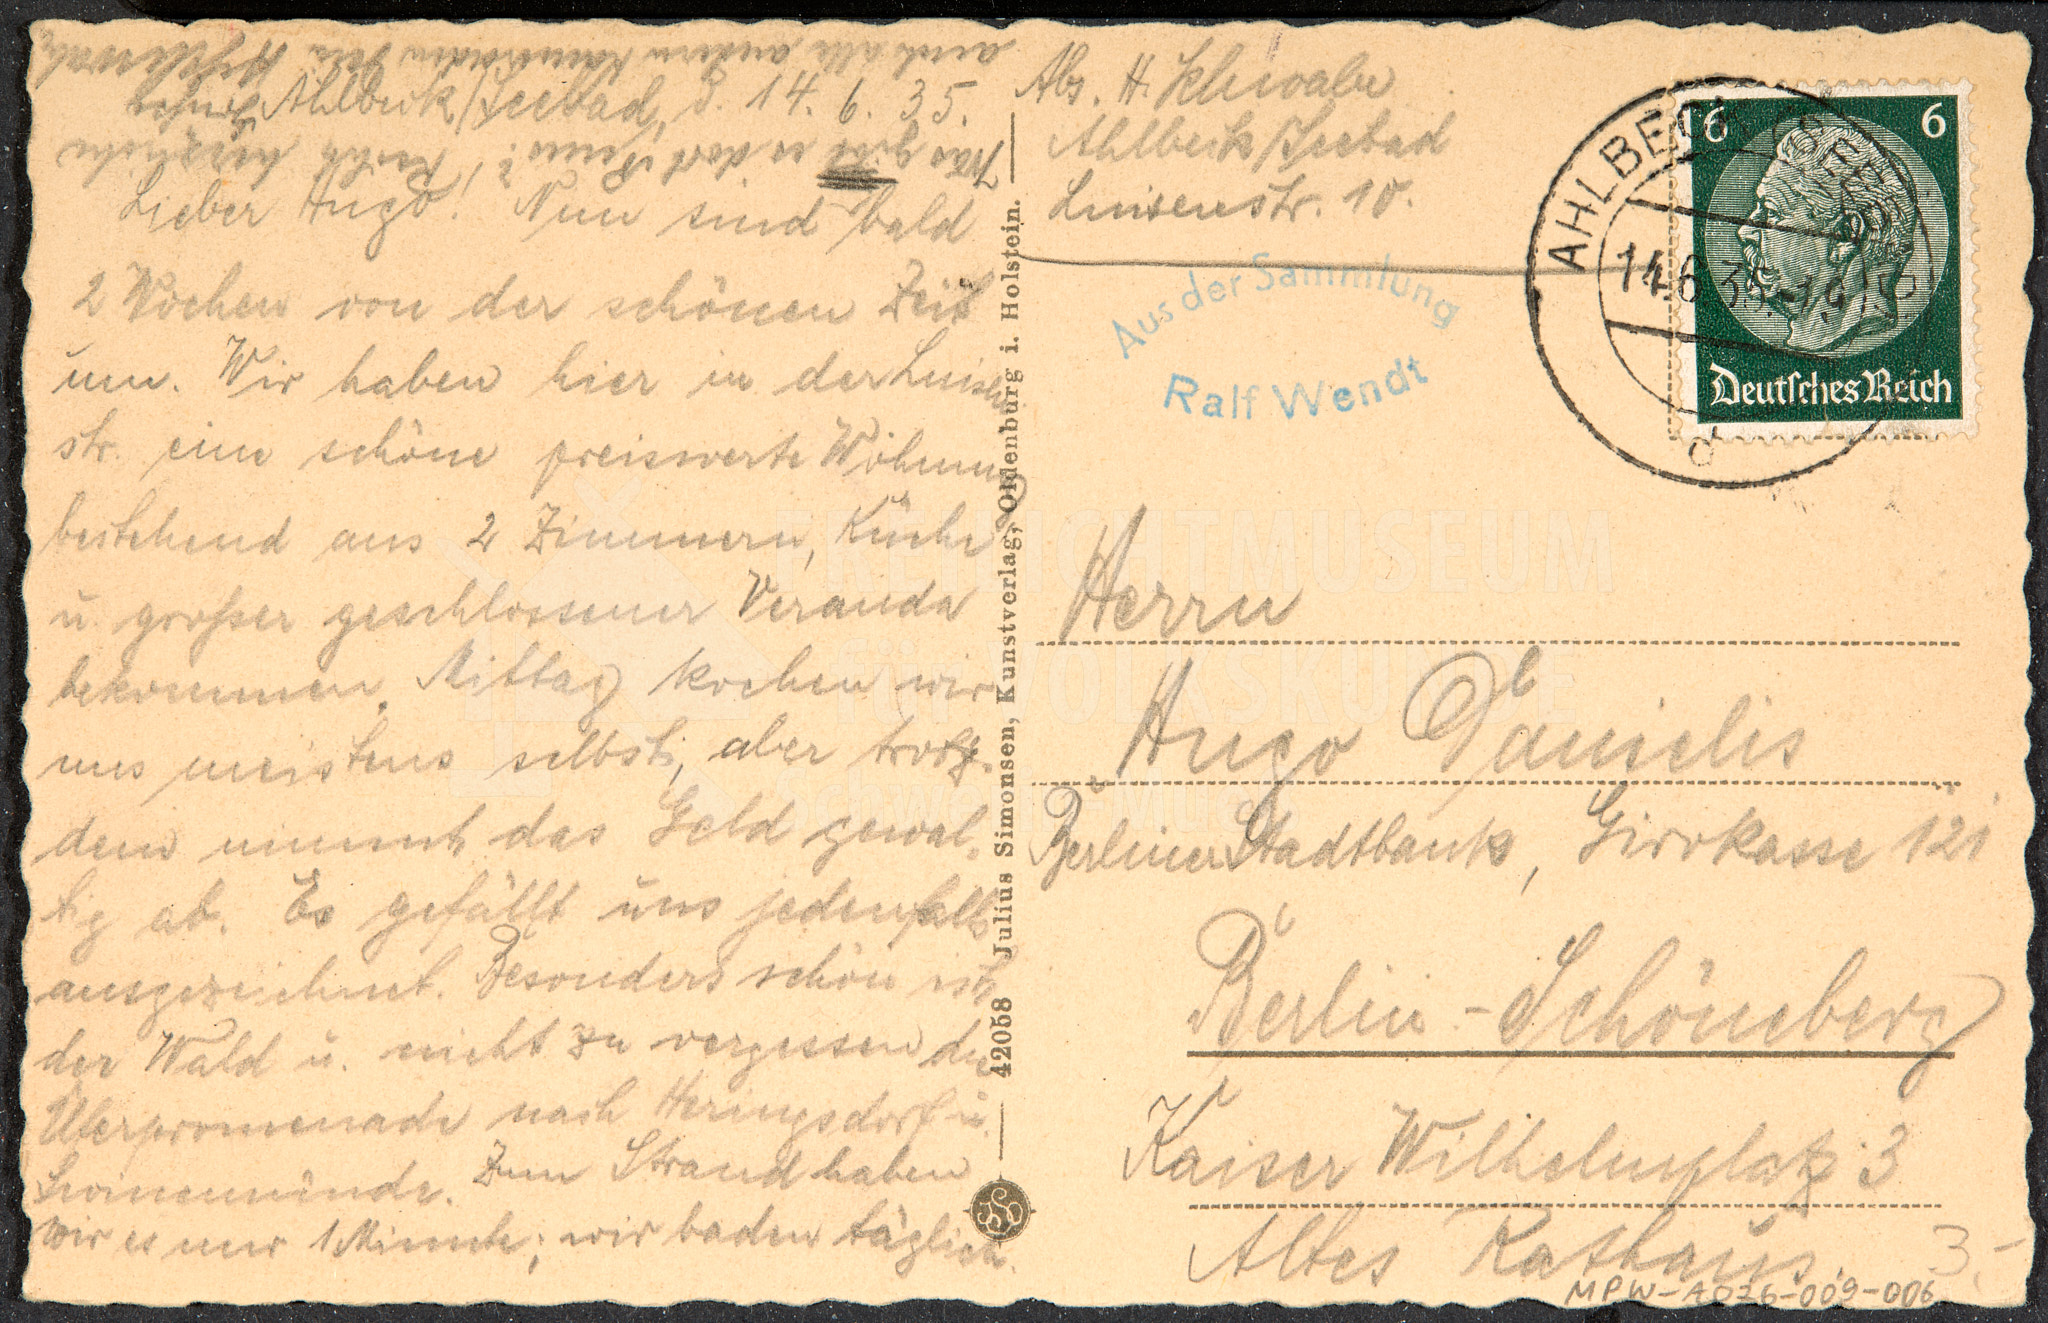 Ahlbeck/Seebad, d. 14. 6. 35.
Lieber Hugo! Nun sind bald
2 Wochen von der schönen Zeit
um. Wir haben hier in der Luisen
str. eine schöne preiswerte Wohnung
bestehend aus 2 Zimmern, Küche
u großer geschlossener Veranda
bekommen. Mittag kochen wir
uns meistens selbst, aber trotz-
dem nimmt das Geld gewal-
tig ab. Es gefällt uns jedenfalls
ausgezeichnet. Besonders schön ist
der Wald u. nicht zu vergessen die
Uferpromenade nach Heringsdorf u.
Swinemünde. Zum Strand haben
wir es nur 1 Minute; wir baden täglich.
Was gibt es dort Neues? Recht herzliche
auch alle andern Kameraden Dein H. Schwabe
42058 Julius Simonsen, Kunstverlag, Oldenburg i. Holstein.
Abs. H. Schwabe
Ahlbeck/Seebad
Luisenstr. 10.
Aus der Sammlung
Ralf Wendt
AHLBECK (SEEBAD)
14.6.35.-14
d
6 6
Deutsches Reich
Herrn
Hugo Danielis
Berliner Stadtbank, Girokasse 121
Berlin-Schöneberg
Kaiser Wilhelmplatz 3
Altes Rathaus.
3,-
MPW-A026-009-006
FREILICHTMUSEUM
für VOLKSKUNDE
Schwerin-Mueß